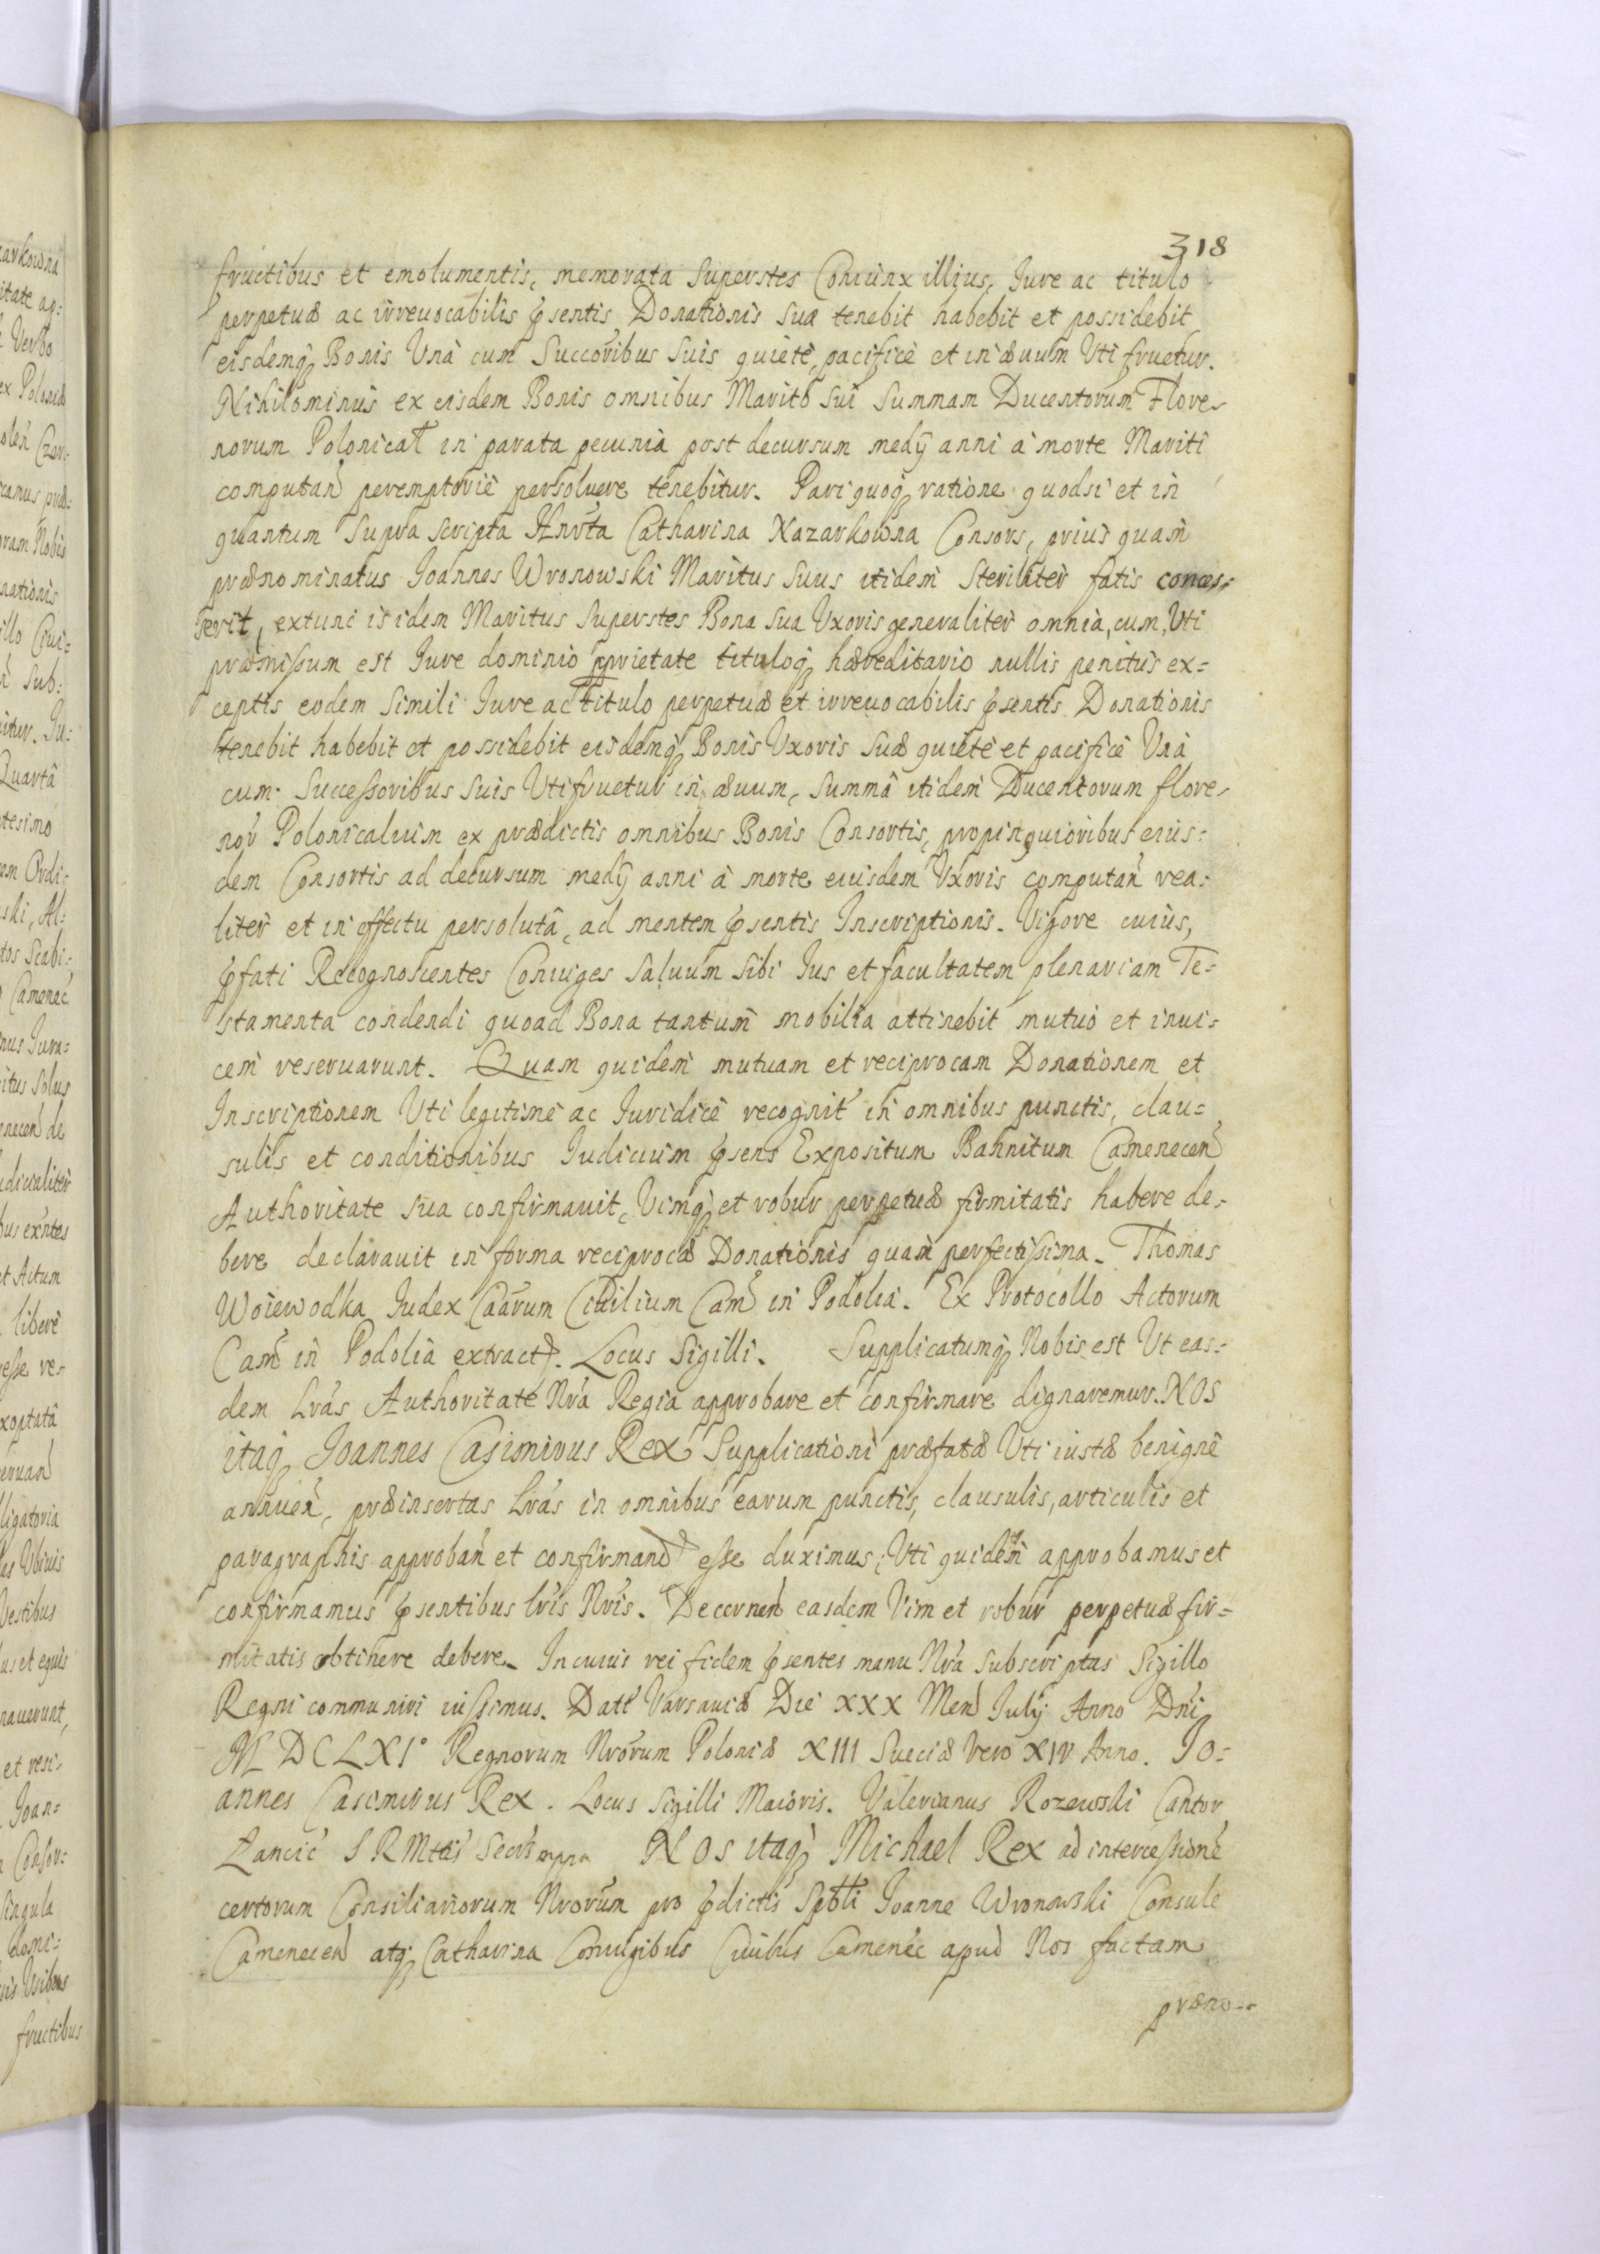 318
fructibus et emolumentis, memorata Superstes Coniunx illius, Iure ac titulo
perpetuæ ac irreuocabilis psentis Donationis Suæ tenebit habebit et possidebit
eisdemq Bonis Vnà cum Succoribus Suis quietè, pacificè et in æuum Vti fruetur.
Nihilominus ex eisdem Bonis omnibus Maritò Sui Summam Ducentorum Flore-
norum Polonical in parata pecunia post decursum medÿ anni à morte Mariti
computan peremptoriè persoluere tenebitur. Pari quoq ratione quodsi et in
quantum Supra scripta Hnrta Catharina Nazarkowna Consors, prius quam
prænominatus Joannes Wronowski Maritus Suus itidem Steriliter fatis conces-
serit, extunc is idem Maritus Superstes Bona Sua Vxoris generaliter omnia, cum, Vti
præmissum est Iure dominio pprietate tituloq hæreditario nullis penitus ex=
ceptis eodem Simili Iure ac titulo perpetuæ et irreuocabilis psentis Donationis
tenebit habebit et possidebit eisdemq Bonis Vxoris Suæ quietè et pacificè Vnà
cum Successoribus Suis Vtifruetur in æuum, Summâ itidem Ducentorum flore-
nor Polonicalium ex prædictis omnibus Bonis Consortis, propinquioribus eius=
dem Consortis ad decursum medÿ anni à morte eiusdem Vxoris computan rea=
liter et in effectu persolutâ, ad mentem psentis Inscriptionis. Vigore cuius,
pfati Recognoscentes Coniuges Saluum Sibi Ius et facultatem plenariam Te=
stamenta condendi quoad Bona tantum mobilia attinebit mutuo et inui=
cem reseruarunt. Quam quidem mutuam et reciprocam Donationem et
Inscriptionem Vti legitimè ac Iuridicè recognit in omnibus punctis, clau=
sulis et conditionibus Iudicium psens Expositum Bannitum Camenecen
Authoritate sua confirmauit, Vimq et robur perpetuæ firmitatis habere de=
bere declarauit in forma reciprocæ Donationis quam perfectissima. Thomas
Woiewodka Iudex Caarum Ciuilium Cam in Podolia. Ex Protocollo Actorum
Cam in Podolia extract. Locus Sigilli. Supplicatumq Nobis est Vt eas=
dem Lras Authoritate Nra Regia approbare et confirmare dignaremur. NOS
itaq Joannes Casimirus Rex Supplicationi præfatæ Vti iustæ benignè
annuen, præinsertas Lras in omnibus earum punctis, clausulis, articulis et
paragraphis approban et confirmand esse duximus, Vti quidem approbamus et
confirmamus psentibus lris Nris. Decernen easdem Vim et robur perpetuæ fir=
mitatis obtinere debere. In cuius rei fidem psentes manu Nra Subscriptas Sigillo
Regni communiri iussimus. Datt Varsauiæ Die XXX Men Iulÿ Anno Dni
MDCLXI° Regnorum Nrorum Poloniæ XIII Sueciæ Vero XIV Anno. Jo=
annes Casimirus Rex. Locus Sigilli Maioris. Valerianus Rozewski Cantor
Lancic S R Mttis Secrt NOS itaq Michael Rex ad intercessione
certorum Consiliariorum Nrorum pro pdictis Sptti Joanne Wronowski Consule
Camenecen atq Catharina Coniugibus Ciuibus Camenec apud Nos factam
præno--